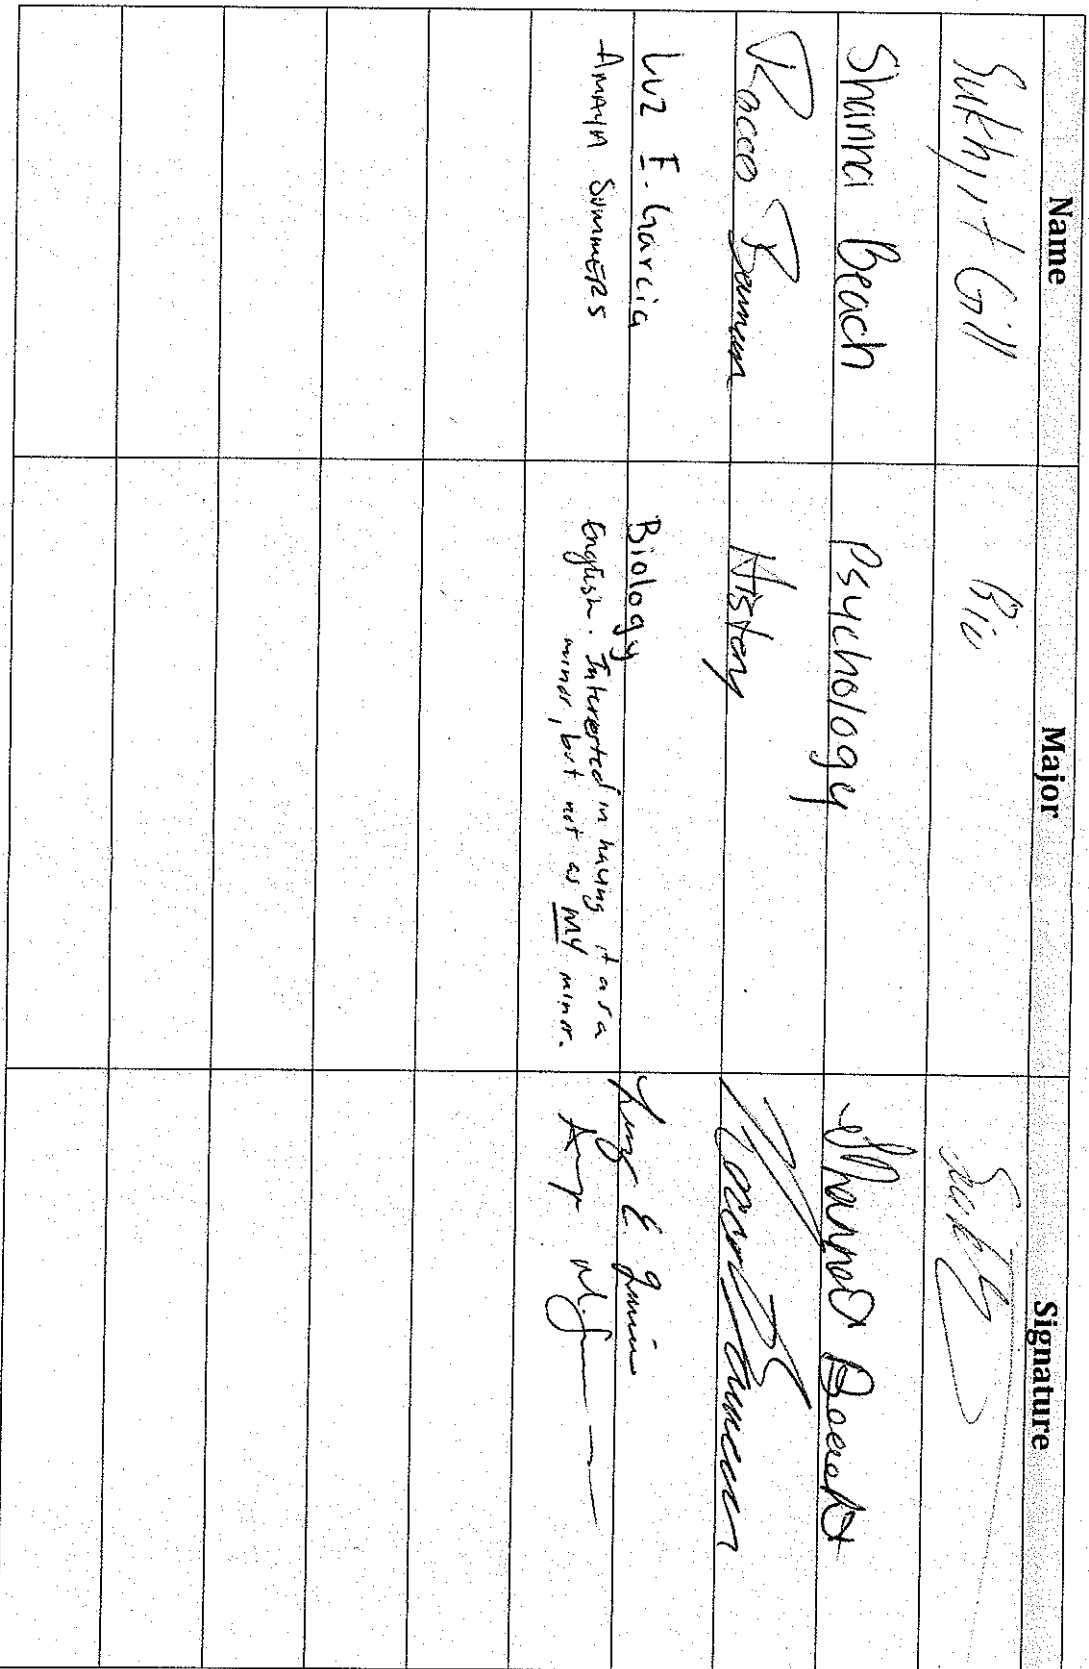 Name Major Signature
Sukhjit Gill Bio
Shanna Beach Psychology Shanna Beach
Rocco History
Luz E. Garcia Biology Luz E.
Summers English. Interested in having it as a
minor, but not as my minor.